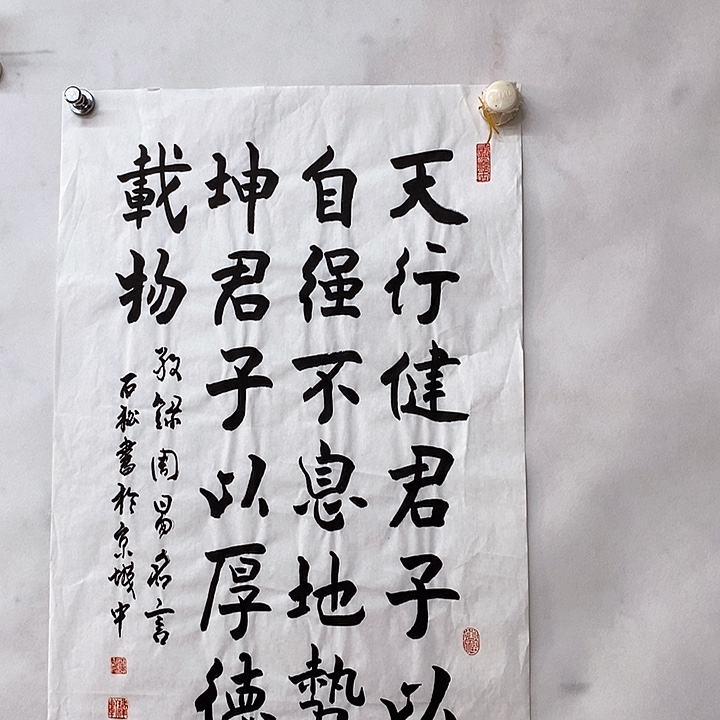 天行健君子以
自强不息地勢
坤君子以厚德
載物
敬錄周易名言
石松書於京城中